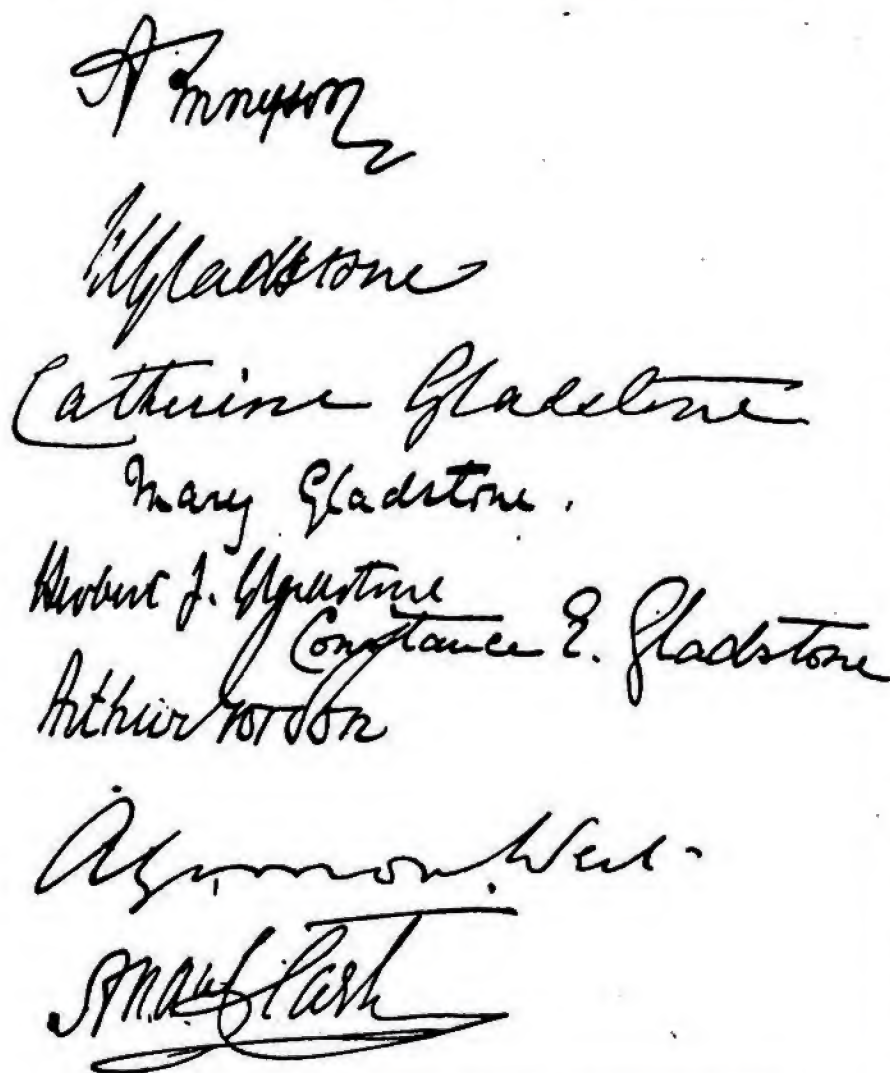 A Tennyson
WEGladstone
Catherine Gladstone
Mary Gladstone.
Herbert J. Gladstone
Constance E. Gladstone
Arthur Gordon
Algernon. West.
Andrew Clark